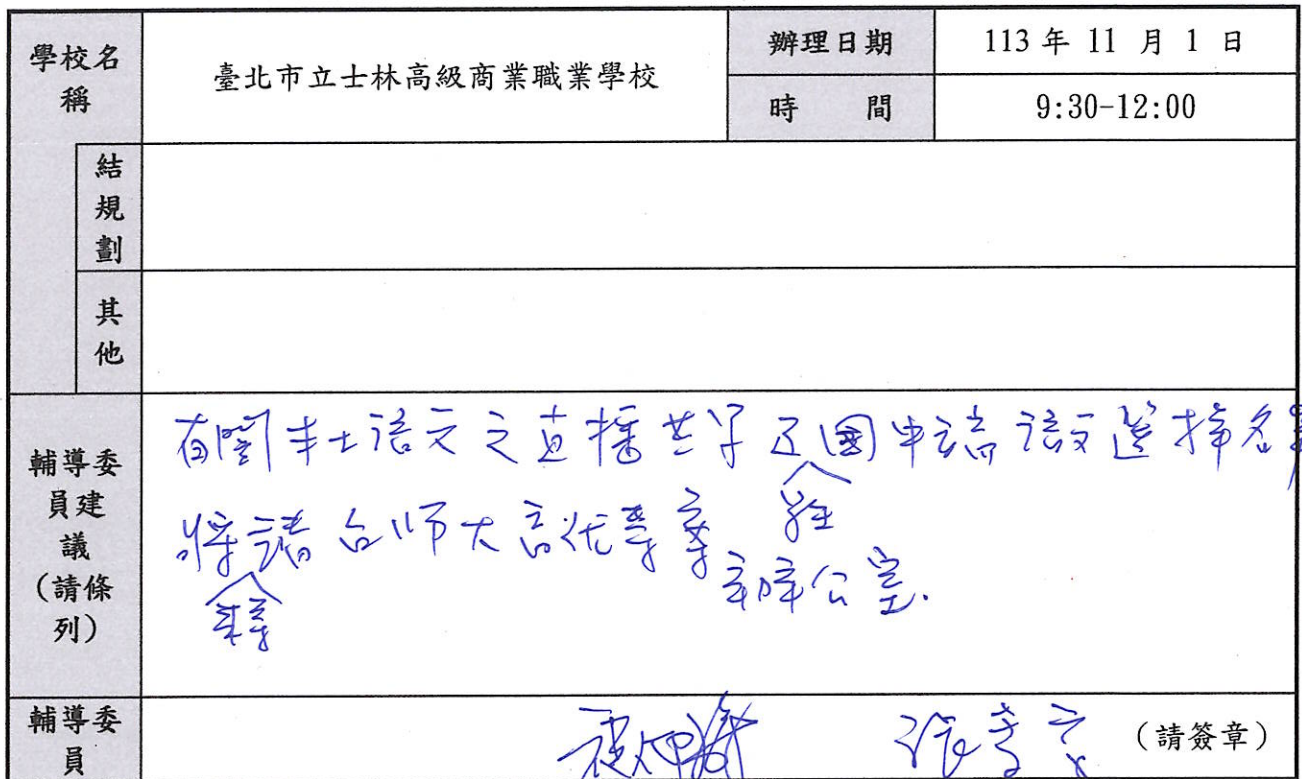 學校名稱
臺北市立士林高級商業職業學校
辦理日期
113 年 11 月 1 日
時 間
9:30-12:00
結規劃
其他
輔導委員建議（請條列）
有關本土語文之直播共学及國申請語文選擇名
將請台师大高优專案辦公室.
輔導委員
（請簽章）